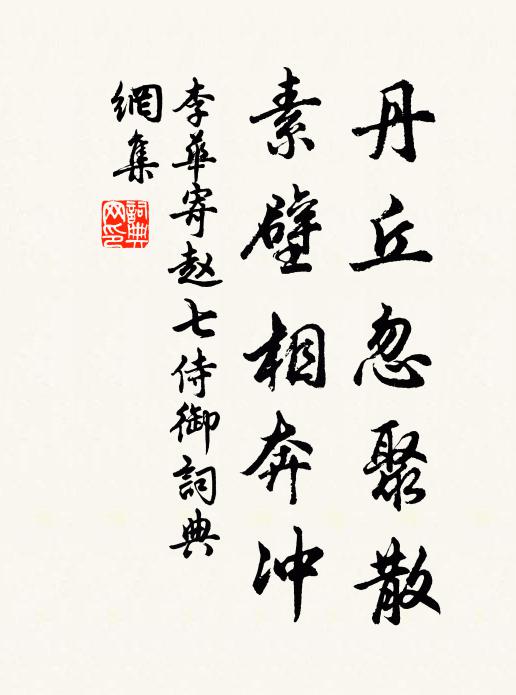 丹丘忽聚散
素壁相奔冲
李華寄赵七侍御詞典
網集
詞典網印